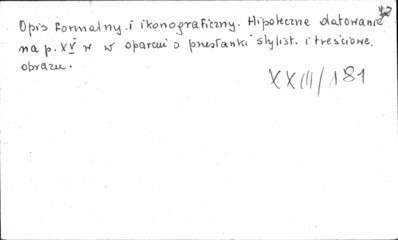 Opis formalny i ikonograficzny. Hipoteczne datowanie
na p. XV w w oparciu o przesłanki stylist. i treściowe
obrazu.
XXIII/181